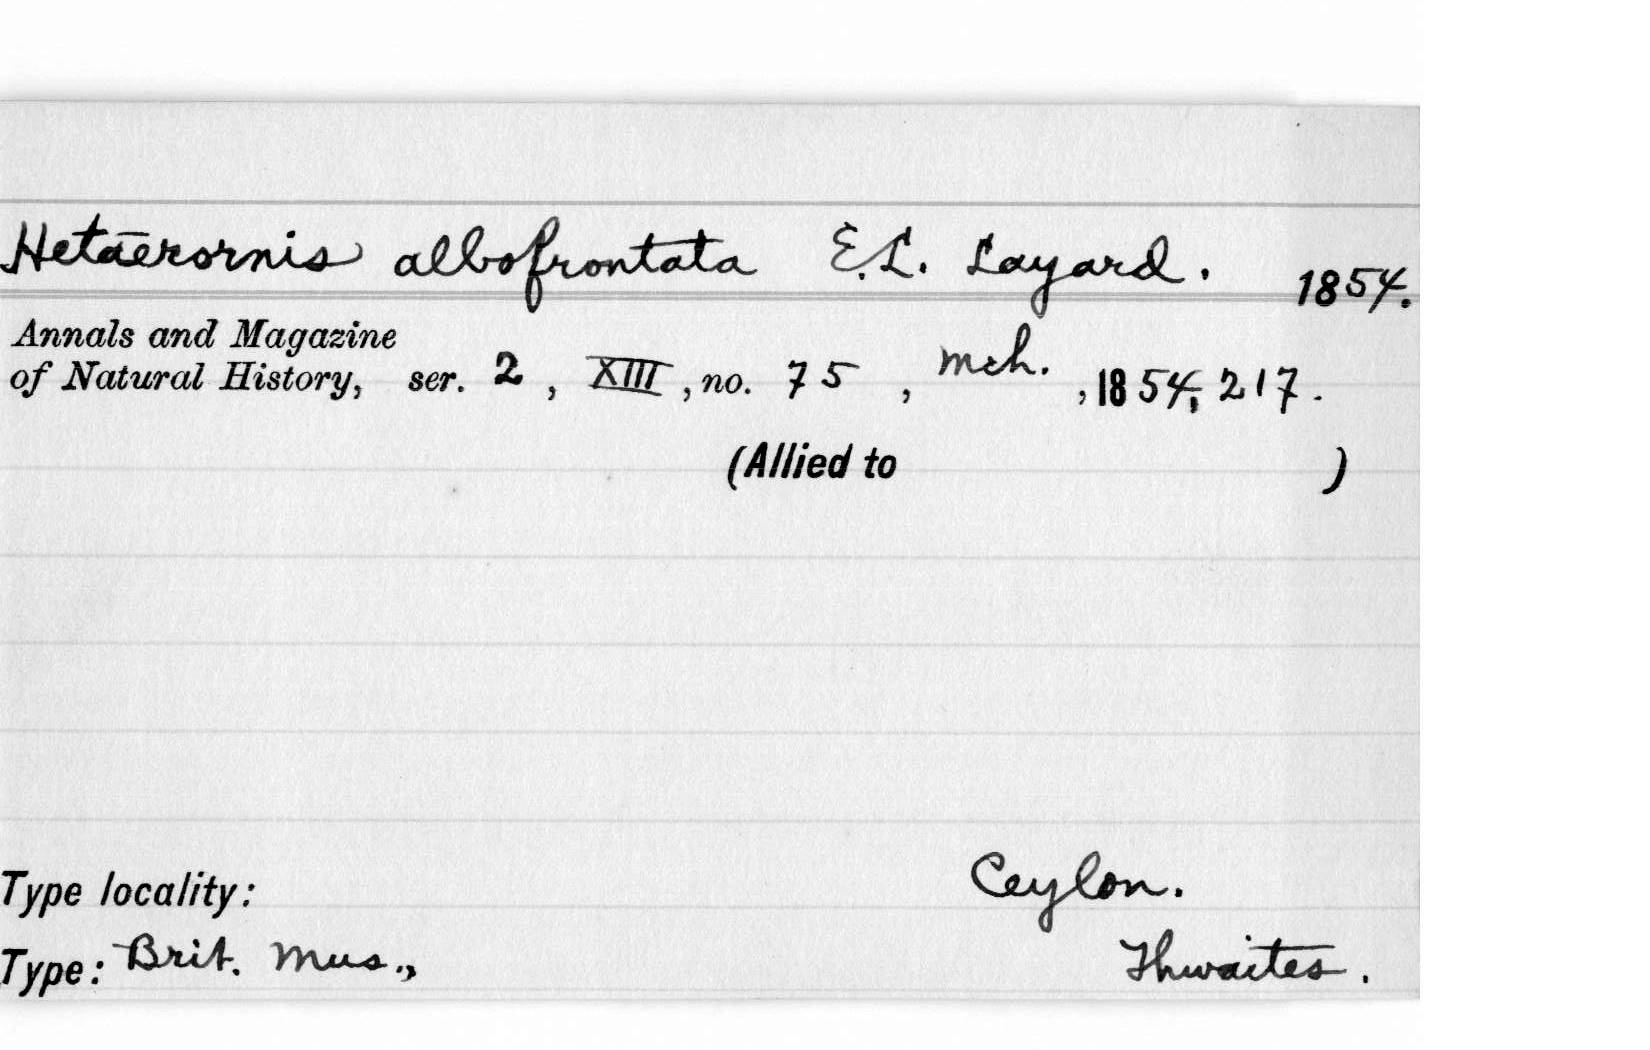 Hetaerornis albofrontata E.L. Layard. 1854.
Annals and Magazine
of Natural History, ser. 2, XIII, no. 75, Mch., 1854, 217.
(Allied to )
Type locality: Ceylon.
Type: Brit. Mus., Thwaites.